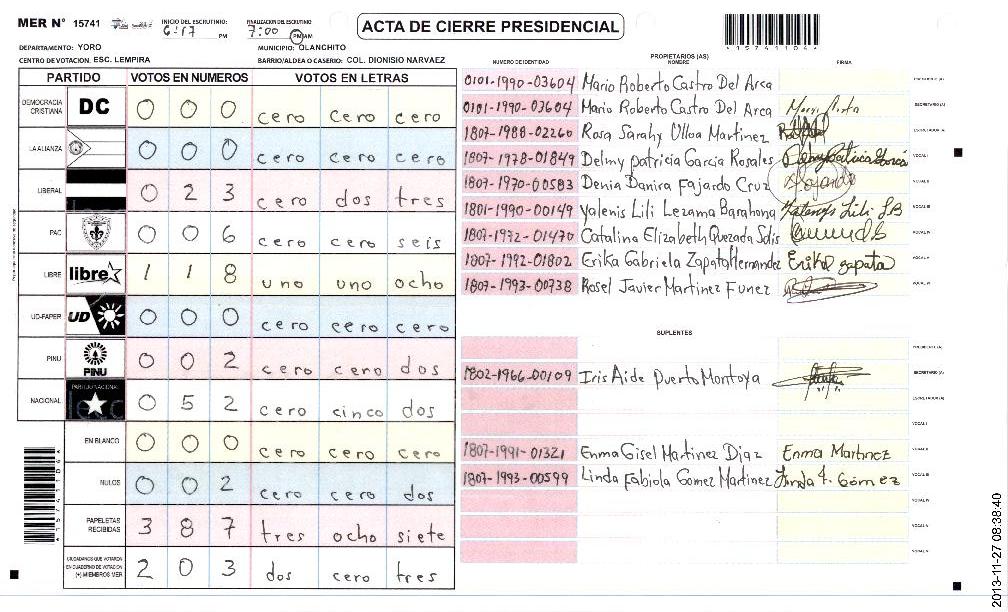 MER N° 15741
INICIO DEL ESCRUTINIO: 6:17 PM
FINALIZACION DEL ESCRUTINIO 7:00 PM AM
ACTA DE CIERRE PRESIDENCIAL
DEPARTAMENTO: YORO
MUNICIPIO: OLANCHITO
CENTRO DE VOTACION: ESC. LEMPIRA
BARRIO/ALDEA O CASERIO: COL. DIONISIO NARVAEZ
PARTIDO VOTOS EN NUMEROS VOTOS EN LETRAS
DEMOCRACIA CRISTIANA DC 0 0 0 cero cero cero
LA ALIANZA 0 0 0 cero cero cero
LIBERAL 0 2 3 cero dos tres
PAC 0 0 6 cero cero seis
LIBRE libre 1 1 8 uno uno ocho
UD-FAPER UD 0 0 0 cero cero cero
PINU PINU 0 0 2 cero cero dos
NACIONAL PARTIDO NACIONAL 0 5 2 cero cinco dos
EN BLANCO 0 0 0 cero cero cero
NULOS 0 0 2 cero cero dos
PAPELETAS RECIBIDAS 3 8 7 tres ocho siete
CIUDADANOS QUE VOTARON EN CUADERNO DE VOTACION (+) MIEMBROS MER 2 0 3 dos cero tres
PROPIETARIOS (AS)
NUMERO DE IDENTIDAD NOMBRE FIRMA
0101-1990-03604 Mario Roberto Castro Del Arca
0101-1990-03604 Mario Roberto Castro Del Arca SECRETARIO (A)
1807-1988-02260 Rosa Sarahy Ulloa Martinez ESCRUTADOR (A)
1807-1978-01849 Delmy patricia Garcia Rosales VOCAL I
1807-1970-00583 Denia Danira Fajardo Cruz VOCAL II
1801-1990-00149 Yalenis Lili Lezama Barahona VOCAL III
1807-1972-01470 Catalina Elizabeth Quezada Solis VOCAL IV
1807-1992-01802 Erika Gabriela Zapata Hernandez Erika zapata VOCAL V
1807-1993-00738 Rosel Javier Martinez Funez VOCAL VI
SUPLENTES
PRESIDENTE (A)
1802-1966-00109 Iris Aide Puerto Montoya SECRETARIO (A)
ESCRUTADOR (A)
VOCAL I
1807-1991-01321 Enma Gisel Martinez Diaz Enma Martinez VOCAL II
1807-1993-00599 Linda Fabiola Gomez Martinez Linda F. Gómez VOCAL III
VOCAL IV
VOCAL V
VOCAL VI
2013-11-27 08:38:40